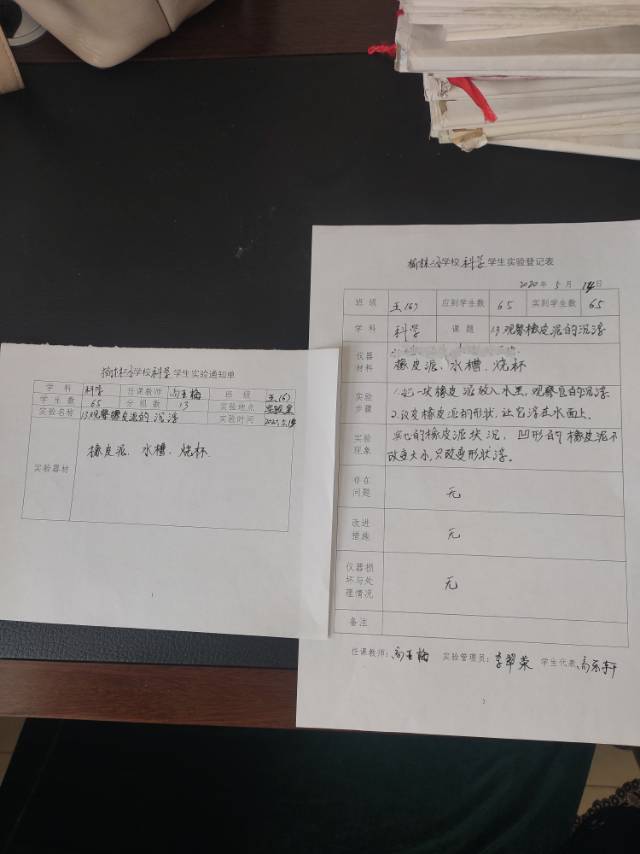 学校科学学生实验通知单
学科 科学 任课教师 高玉梅 班级 五(6)
学生数 65 分组数 13 实验地点 实验室
实验名称 13观察橡皮泥的沉浮 实验时间
实验器材 橡皮泥、水槽、烧杯
1
学校科学学生实验登记表
2020年5月14日
班级 五(6) 应到学生数 65 实到学生数 65
学科 科学 课题 13观察橡皮泥的沉浮
仪器材料 橡皮泥、水槽、烧杯
实验步骤 1.把一块橡皮泥放入水里,观察它的沉浮
2.改变橡皮泥的形状,让它浮在水面上.
实验现象 实心的橡皮泥状沉,凹形的橡皮泥不
改变大小,只改变形状浮。
存在问题 无
改进措施 无
仪器损坏与处理情况 无
备注
任课教师:高玉梅 实验管理员:李翠荣 学生代表:高
2